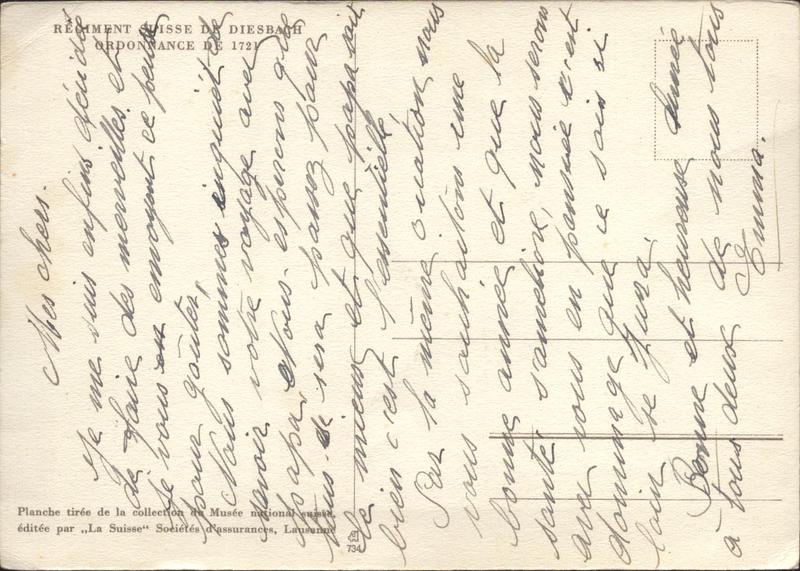 RÉGIMENT SUISSE DE DIESBACH
ORDONNANCE DE 1721
Mes chers.
Je me suis enfins décidée
de faire des merveilles et
je vous en envoyant ce peu
pour goûter,
Nous sommes inquiet de
savoir votre voyage avec
papa. Nous espérons que
tous se sera passez pour
le mieux et que papa soit
bien c'est l'essentielle
Par la même ocation nous
vous souhaitons une
bonne année et que la
santé s'améliore, nous serons
avec vous en pensée c'est
dommage que ce sois si
loin le Jura.
Bonne et heureuse Année
à tous deux de nous tous
Emma.
Planche tirée de la collection du Musée national suisse,
éditée par „La Suisse“ Sociétés d'assurances, Lausanne
734